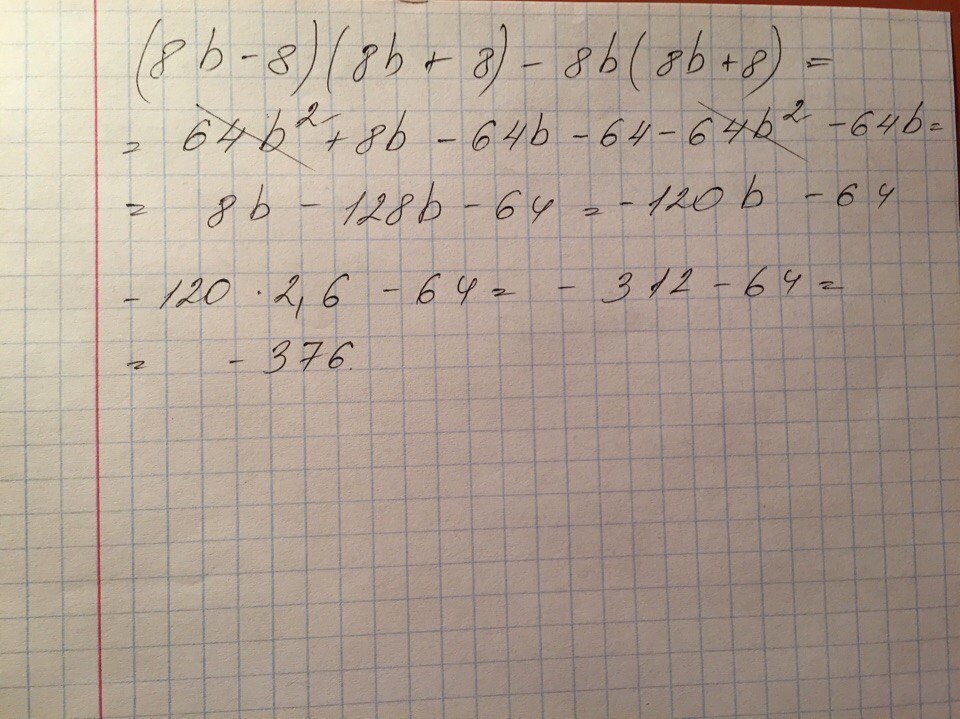 (8b - 8)(8b + 8) - 8b(8b + 8) =
= 64b² + 8b - 64b - 64 - 64b² - 64b =
= 8b - 128b - 64 = -120b - 64
-120 · 2,6 - 64 = - 312 - 64 =
= - 376.